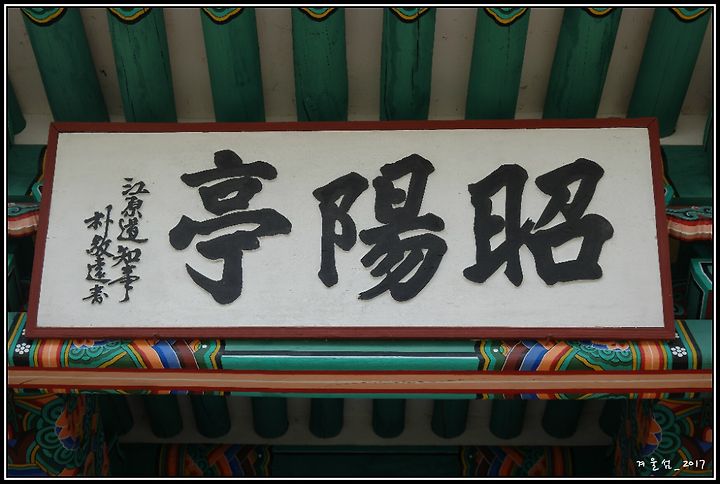 昭陽亭
江原道知事
朴敬遠書
겨울섬_2017